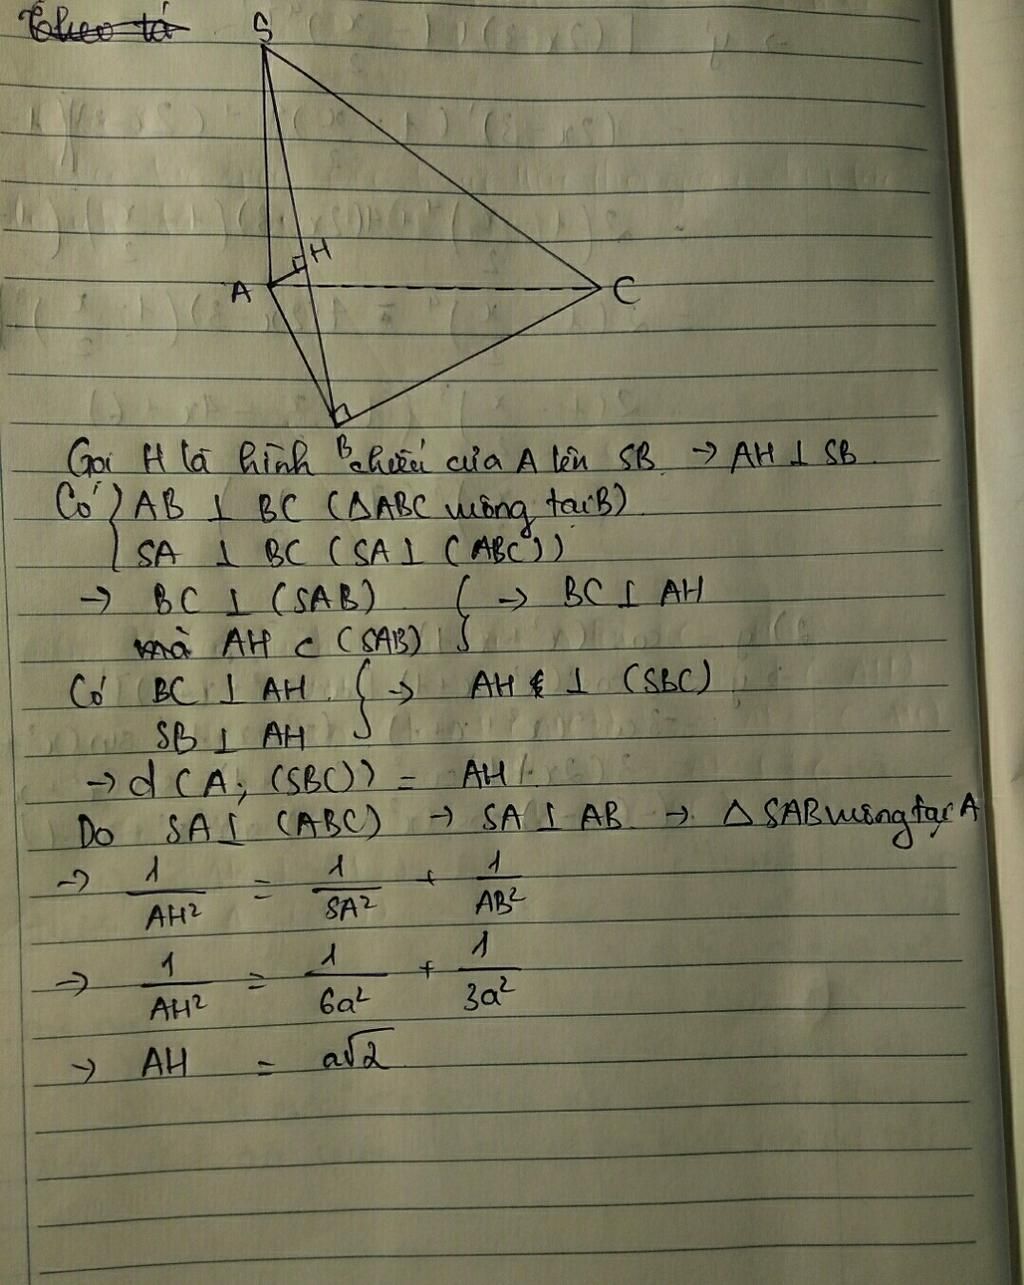 Theo tá
S
H
A
C
B
Gọi H là hình chiếu của A lên SB → AH ⊥ SB
Có { AB ⊥ BC (ΔABC vuông tại B)
SA ⊥ BC (SA ⊥ (ABC))
→ BC ⊥ (SAB) } → BC ⊥ AH
mà AH ⊂ (SAB)
Có BC ⊥ AH } → AH ⊥ (SBC)
SB ⊥ AH
→ d (A; (SBC)) = AH
Do SA ⊥ (ABC) → SA ⊥ AB → Δ SAB vuông tại A
→ 1/AH² = 1/SA² + 1/AB²
→ 1/AH² = 1/6a² + 1/3a²
→ AH = a√2